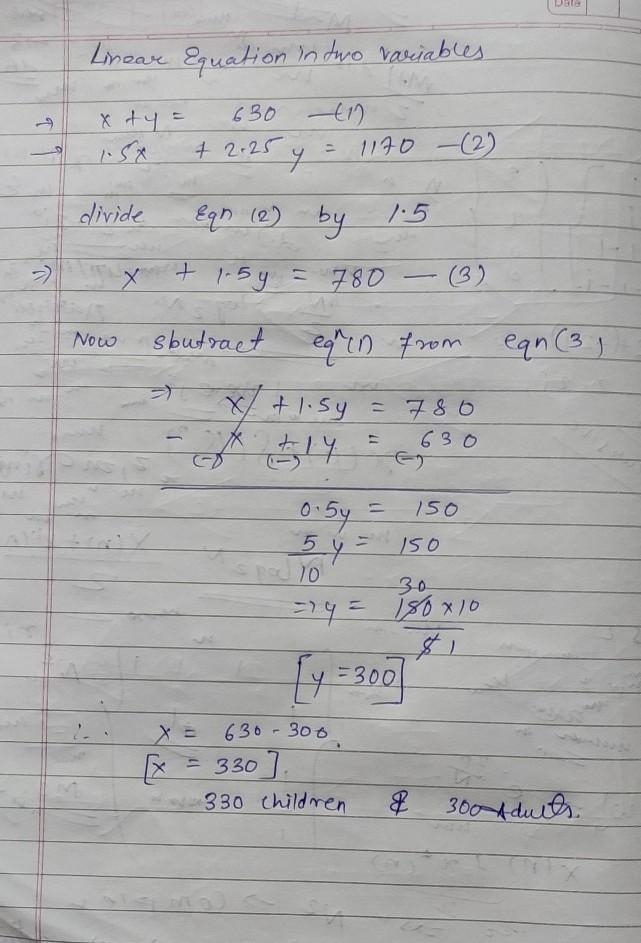 Date
Linear Equation in two variables
→ x + y = 630 —(1)
→ 1.5x + 2.25 y = 1170 —(2)
divide Eqn (2) by 1.5
⇒ x + 1.5y = 780 — (3)
Now sbutract eqⁿ(1) from eqn (3)
⇒ x + 1.5y = 780
- x + 1y = 630
(-) (-) (-)
0.5y = 150
5/10 y = 150
30
⇒ y = 150 x 10
5 1
[y = 300]
∴ x = 630 - 300.
[x = 330].
330 children & 300 Adults.